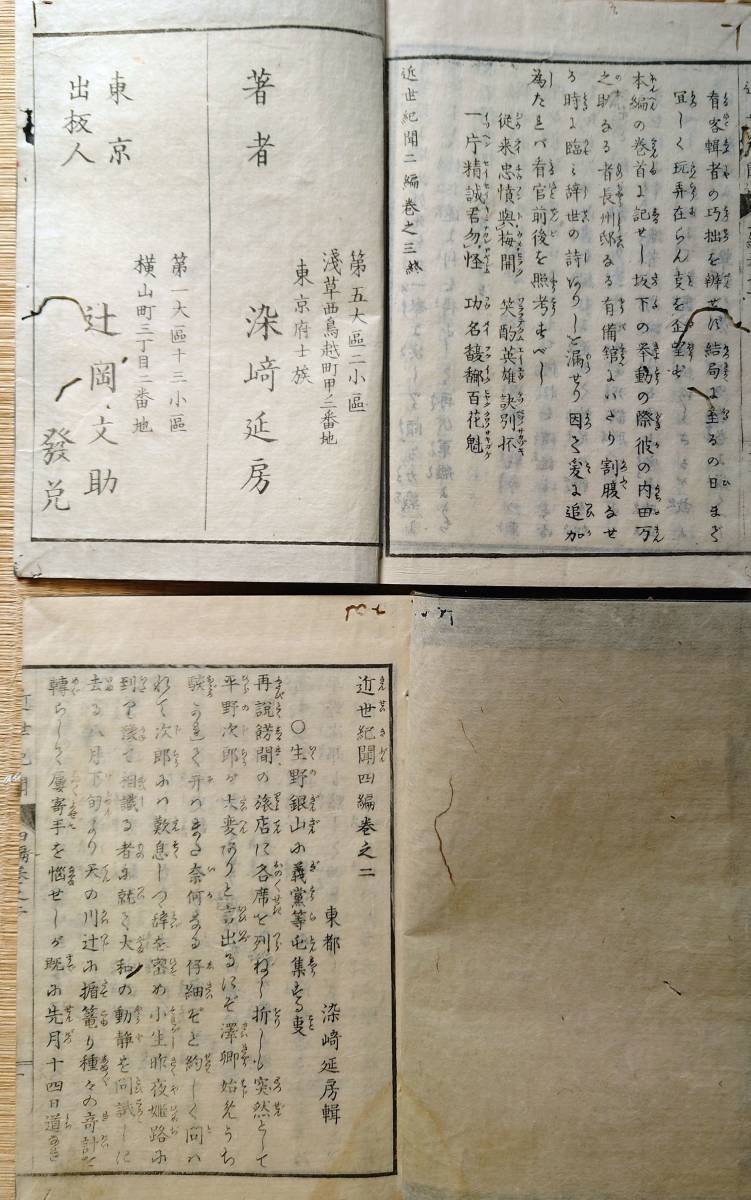 看客輯者の巧拙を辨せば結局に至るの日まで
宜しく玩弄在らん㕝を企望す
本編の巻首に記せし坂下の挙動の際彼の内田万
之助なる者長州邸なる有備館にいたり割腹なせ
る時に臨み辞世の詩ありしを漏せり因て爰に追加
為たれバ看官前後を照考すべし
従来忠憤與梅開 笑酌英雄訣別杯
一片精誠君勿怪 功名馥郁百花魁
近世紀聞二編巻之三終
著者
第五大區二小區
淺草西鳥越町甲三番地
東京府士族
染﨑延房
東京
出板人
第一大區十三小區
横山町三丁目二番地
辻岡文助
發兌
近世紀聞四編巻之二
東都 染﨑延房輯
○生野銀山に義黨等屯集する㕝
再說餝間の旅店に各席を列ねし折しも突然として
平野次郎が大変ありと言出るにぞ澤卿始めうち
駭かれて开ハまた奈何なる仔細ぞと約しく問ハ
れて次郎ハ歎息しつゝ辞を密め小生昨夜姫路に
到り該て相識る者に就て大和の動静を問試しに
去る八月下旬より天の川辻に楯篭り種々の奇計を
轉らして屢寄手を惱せしが既に先月十四日道なき